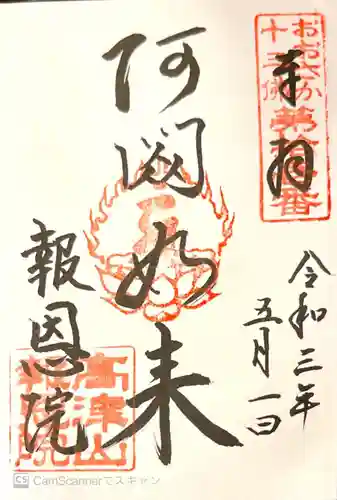 奉拝
おおさか
十三佛
第拾壱番
令和三年
五月一日
阿閦如来
報恩院
高津山
報恩院
CS CamScannerでスキャン